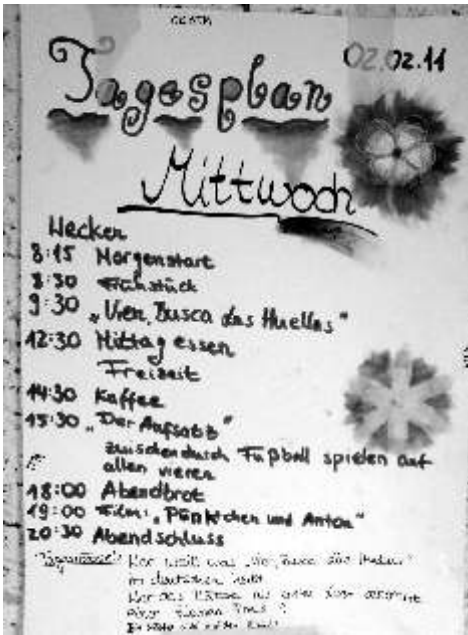 02.02.11
Tagesplan
Mittwoch
Wecken
8:15 Morgenstart
8:30 Frühstück
9:30 „Ven, Busca las Huellas"
12:30 Mittagessen
Freizeit
14:30 Kaffee
15:30 „Der Aufsatz"
zwischendurch Fußball spielen auf
allen vieren
18:00 Abendbrot
19:00 Film: „Pünktchen und Anton"
20:30 Abendschluss
Wer weiß was
im deutschen heißt